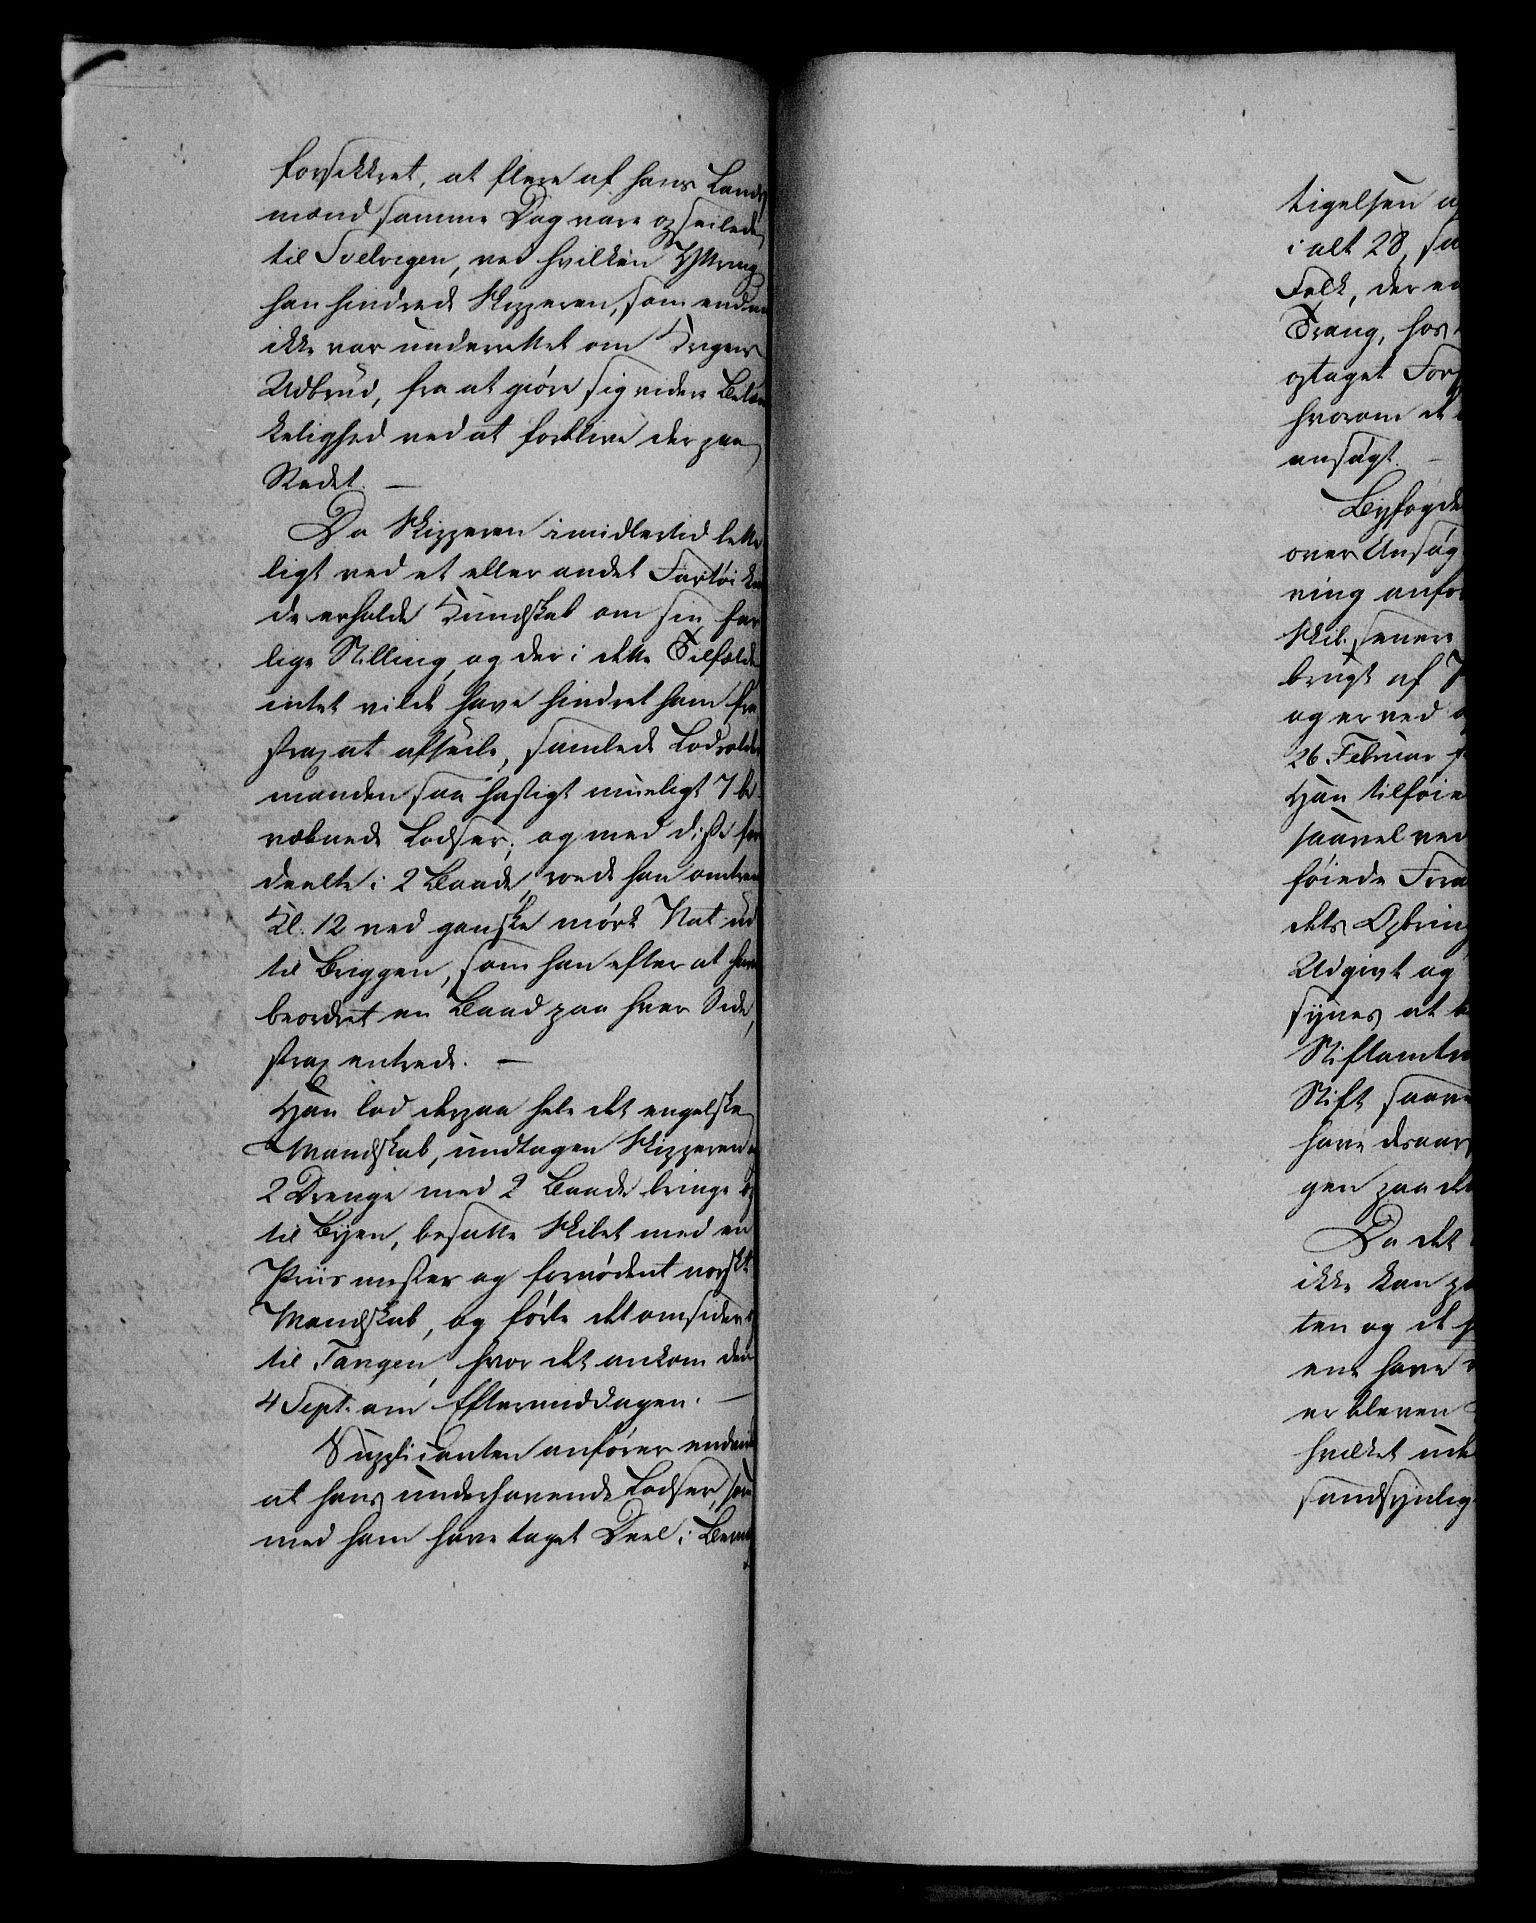 forsikkret, at flere af hans Lands
mænd samme Dag vare opseilede
til Svelvigen, ved hvilken Yttring
han hindrede Skipperen, som endnu
ikke var underrettet om Krigens
Udbrud, fra at giøre sig videre Betæn
kelighed ved at forblive der paa
Stedet. —
Da Skipperen imidlertid lette
ligt ved et eller andet Fartøi kun
de erholde Kundskab om sin far
lige Stilling, og der i dette Tilfælde
intet vilde have hindret ham fra
strax at afseile, samlede Lodsolder
manden saa hastigt mueligt 7 be
væbnede Lodser, og med disse for
deelte i 2 Baade, roede han omtrent
Kl. 12 ved ganske mørk Nat ud
til Briggen, som han efter at have
beordret en Baad paa hver Side,
strax entrede. —
Han lod derpaa hele det engelske
Mandskab, undtagen Skipperen og
2 Drenge med 2 Baade bringe op
til Byen, besatte Skibet med en
Priismester og fornødent norskt
Mandskab, og førte det omsider op
til Tangen, hvor det ankom den
4 Sept. om Eftermiddagen. —
Supplicanten anfører endvidere
at hans underhavende Lodser, som
med ham have taget Deel i Bemæg
tigelsen a
i alt 28, sa
Folk, der e
Trang, hos
optaget For
hvorom de
ansøgt. —
Byfogde
over Ansøg
ring anfø
Skib, senere
brugt af
og er ved
26 Februar
Han tilføie
saavel ved
føiede Fra
dets Opbring
Udgivt og
synes at b
Stiftamtm
Stift saave
have
gen paa de
Da det
ikke kan
ten og de
ene have
er bleven
hvilket ude
sandsynlig